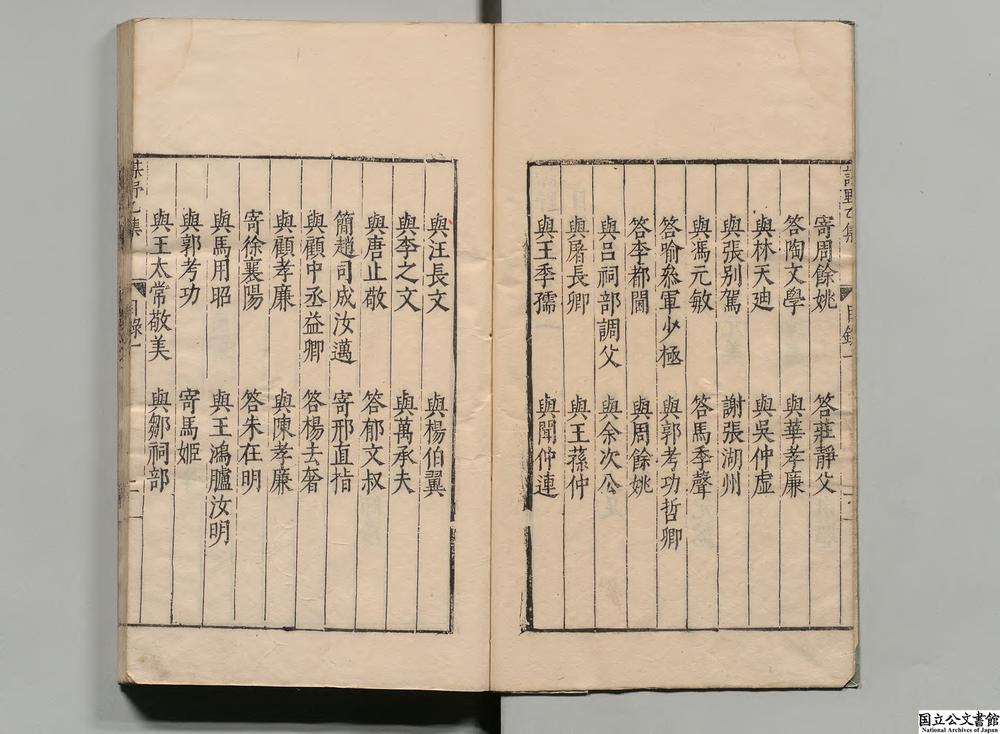 寄周餘姚 答莊靜父
答陶文學 與華孝廉
與林天廸 與吳仲虛
與張别駕 謝張湖州
與馮元敏 答馬季聲
答喻叅軍少極 與郭考功哲卿
答李都閫 與周餘姚
與呂祠部調父 與余次公
與屠長卿 與王蓀仲
與王季孺 與聞仲連
與汪長文 與楊伯翼
與李之文 與萬承夫
與唐止敬 答郁文叔
簡趙司成汝邁 寄邢直指
與顧中丞益卿 答楊去奢
與顧孝廉 與陳孝廉
寄徐襄陽 答朱在明
與馬用昭 與王鴻臚汝明
與郭考功 寄馬姬
與王太常敬美 與鄒祠部
目錄一
国立公文書館
National Archives of Japan